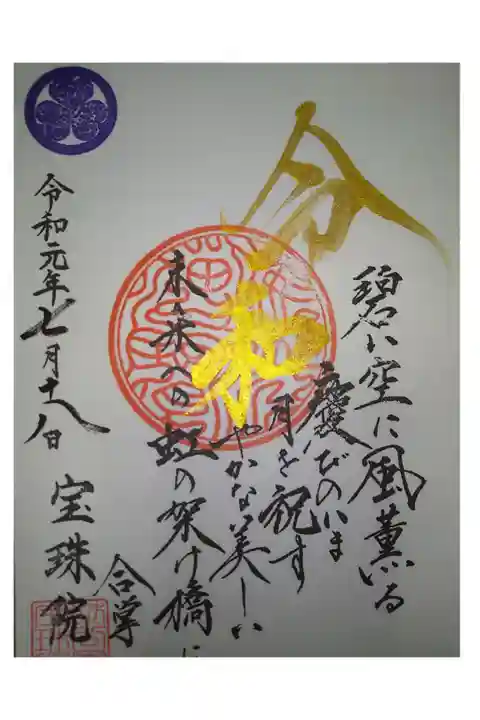 令和
碧い空に風薫る
慶びのいま
月を祝す
やかな美しい
未来への虹の架け橋に
合掌
宝珠院
令和元年七月十八日